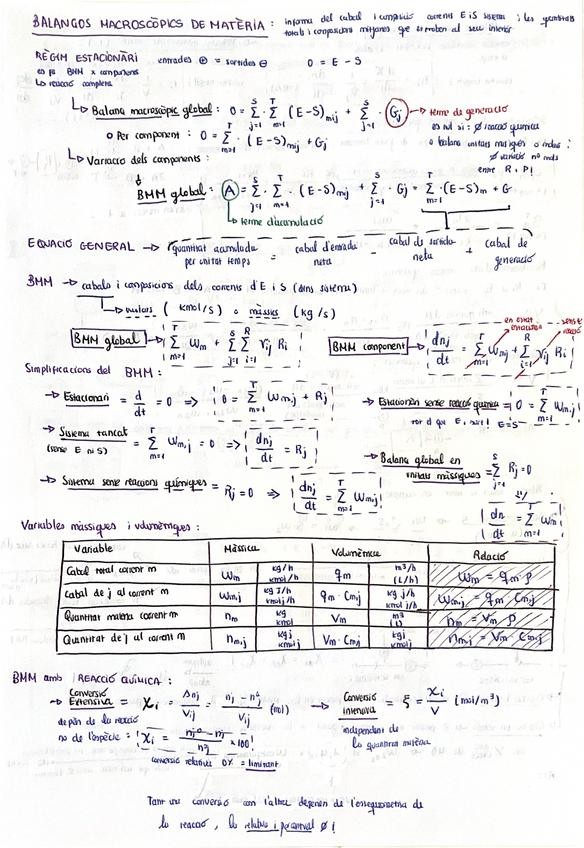 BALANÇOS MACROSCÒPICS DE MATÈRIA : informa del cabal i composició corrents E i S sistema i les quantitats
totals i composicions mitjanes que es troben al seu interior
RÈGIM ESTACIONARI entrades ⊕ = sortides ⊖ 0 = E - S
es fa BMM x components
la reacció completa
↳ Balanç macroscòpic global : 0 = Σ(j=1→S) · Σ(m=1→T) (E-S)mj + Σ(j=1→S) · Gj → terme de generació
es nul si : ∅ reacció química
o Per component : 0 = Σ(m=1→T) · (E-S)mj + Gj
o balanç unitats màssiques o mòlars :
∅ variació nº mols
entre R i P!
↳ Variació dels components :
BMM global : A = Σ(j=1→S) · Σ(m=1→T) · (E-S)mj + Σ(j=1→S) · Gj = Σ(m=1→T) · (E-S)m + G
↳ terme d'acumulació
EQUACIÓ GENERAL → quantitat acumulada per unitat temps = cabal d'entrada neta - cabal de sortida neta + cabal de generació
BMM → cabals i composicions dels corrents d'E i S (dins sistema)
↳ molars ( kmol/s ) o màssics ( kg/s )
BMM global → Σ(m=1→T) Wm + Σ(j=1→S) Σ(i=1→R) νij Ri
en estat estacionari
sense reacció
BMM component → dnj/dt = Σ(m=1→T) Wmj + Σ(i=1→R) νij Ri
Simplificacions del BMM :
→ Estacionari = d/dt = 0 => 0 = Σ(m=1→T) Wm,j + Rj
→ Estacionari sense reacció química = 0 = Σ(m=1→T) Wm,j
tot el que E, surt! E=S
→ Sistema tancat = Σ(m=1→T) Wm,j = 0 => dnj/dt = Rj
(sense E ni S)
→ Balanç global en unitats màssiques = Σ(j=1→S) Rj = 0
→ Sistema sense reaccions químiques = Rj = 0 => dnj/dt = Σ(m=1→T) Wm,j
dn/dt = Σ(m=1→T) Wm
Variables màssiques i volumètriques :
Variable Màssica Volumètrica Relació
Cabal total corrent m Wm kg/h kmol/h qm m³/h (L/h) Wm = qm · ρ
Cabal de j al corrent m Wm,j kg j/h kmol j/h qm · Cm,j kg j/h kmol j/h Wm,j = qm Cm,j
Quantitat matèria corrent m nm kg kmol Vm m³ (L) nm = Vm ρ
Quantitat de j al corrent m nm,j kg j kmol j Vm · Cm,j kg j kmol j nm,j = Vm Cm,j
BMM amb REACCIÓ QUÍMICA :
→ Conversió Extensiva = χi = Δnj/νij = nj - njº/νij (mol)
→ Conversió intensiva = ξ = χi/V (mol/m³)
depèn de la reacció
no de l'espècie :
χi = njº - nj/njº × 100
independent de
la quantitat matèria
conversió relativa 0% = limitant
Tant una conversió com l'altre depenen de l'estequiometria de
la reacció, la relativa i percentual ∅ !